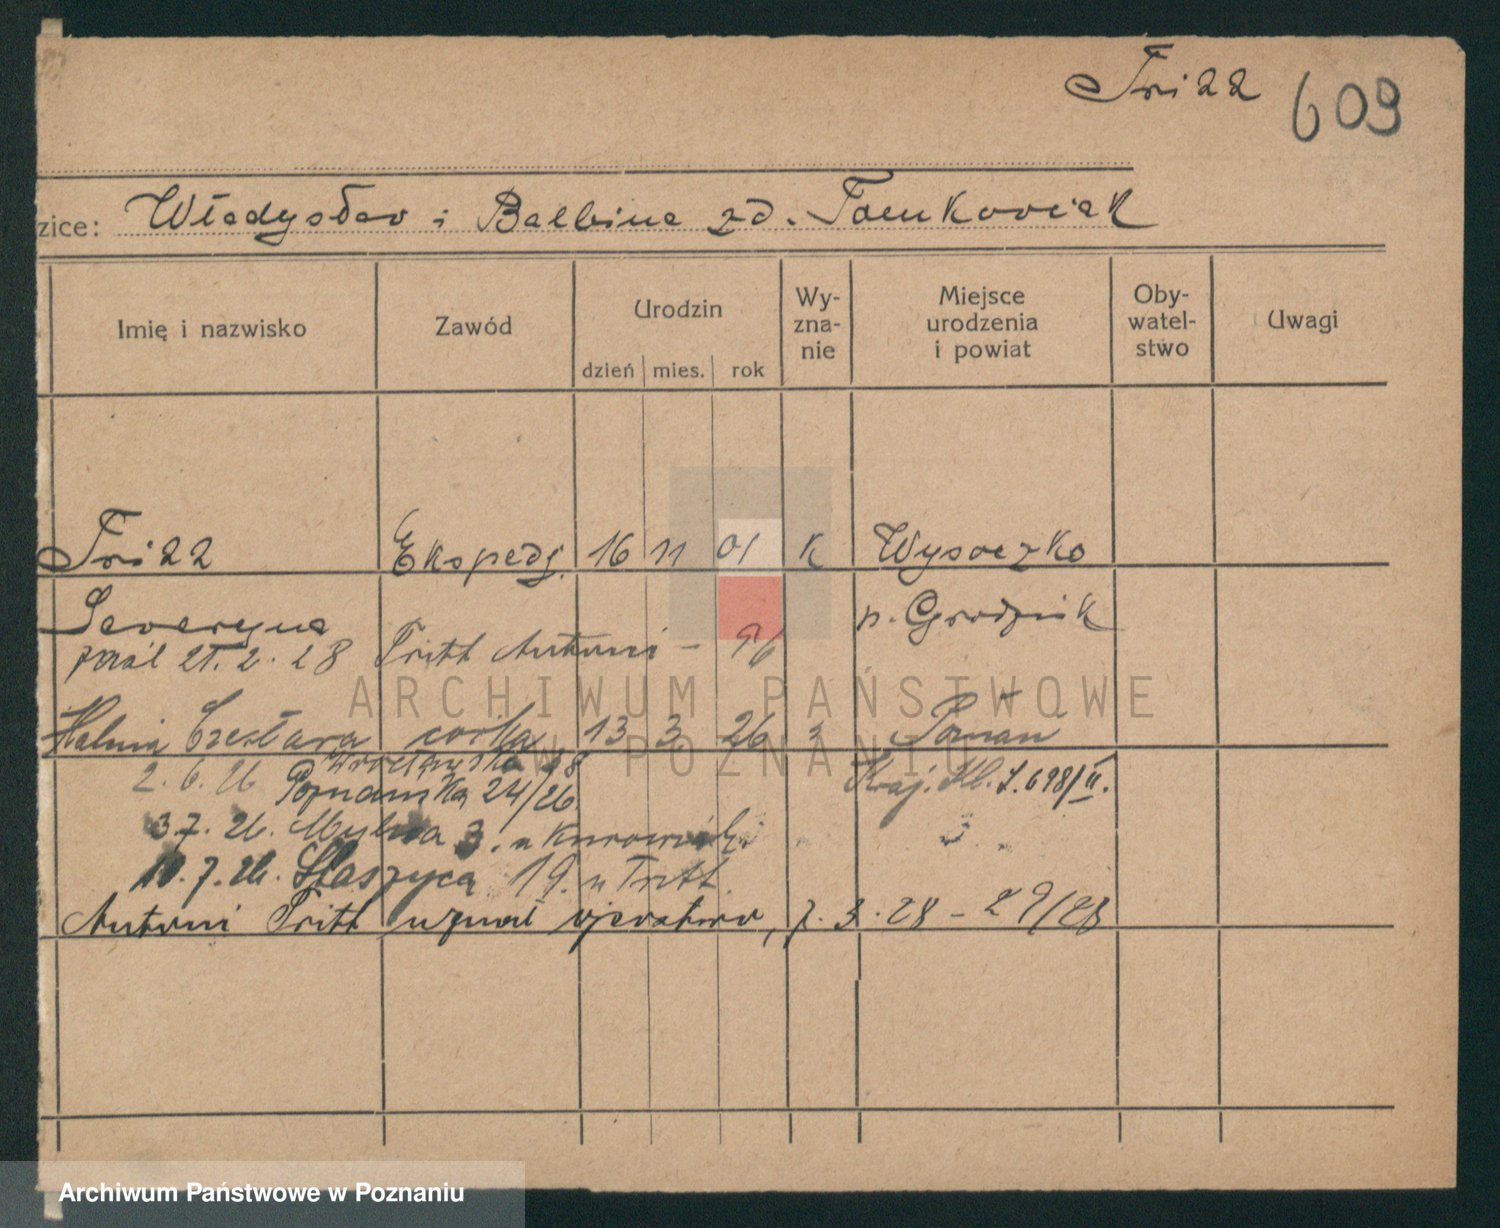 Fritz 609
zice: Władysław i Balbina zd. Tomkowiak
Imię i nazwisko
Zawód
Urodzin
dzień mies. rok
Wy-
zna-
nie
Miejsce
urodzenia
i powiat
Oby-
watel-
stwo
Uwagi
Ekspedj. 16 11 01 k Wysoczko
Seweryna p. Grodzisk
21. 2. 28 Tritt Antoni - 96
córka 13 3 26 Poznań
2. 6. 26 Poznańska 24/26.
3 7. 26. Mylna 3. u
10. 7. 26. Staszyca 19. u Tritt.
Antoni Tritt uznał ojcostwo, 7. 3. 28 - 29/28
ARCHIWUM PAŃSTWOWE
W POZNANIU
Archiwum Państwowe w Poznaniu